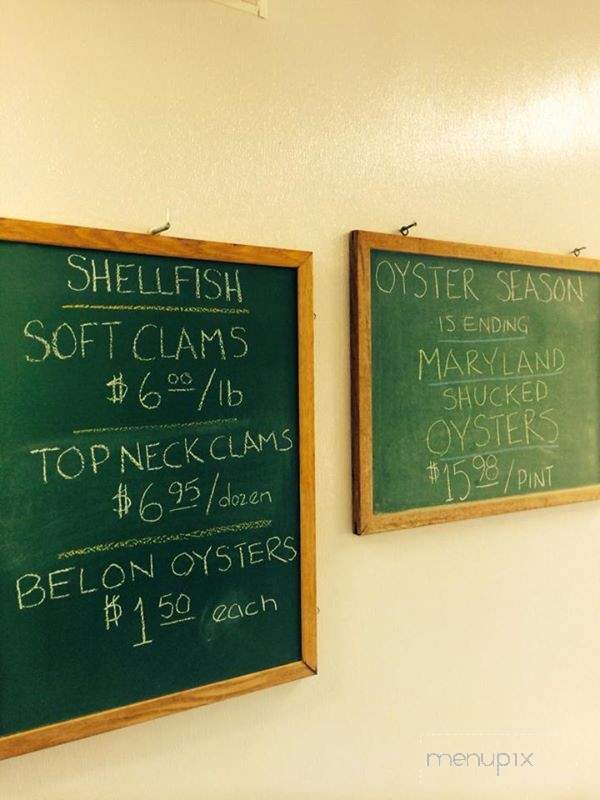 SHELLFISH
SOFT CLAMS
$6.00/lb
TOP NECK CLAMS
$6.95/dozen
BELON OYSTERS
$1.50 each
OYSTER SEASON
IS ENDING
MARYLAND
SHUCKED
OYSTERS
$15.98/PINT
menupix